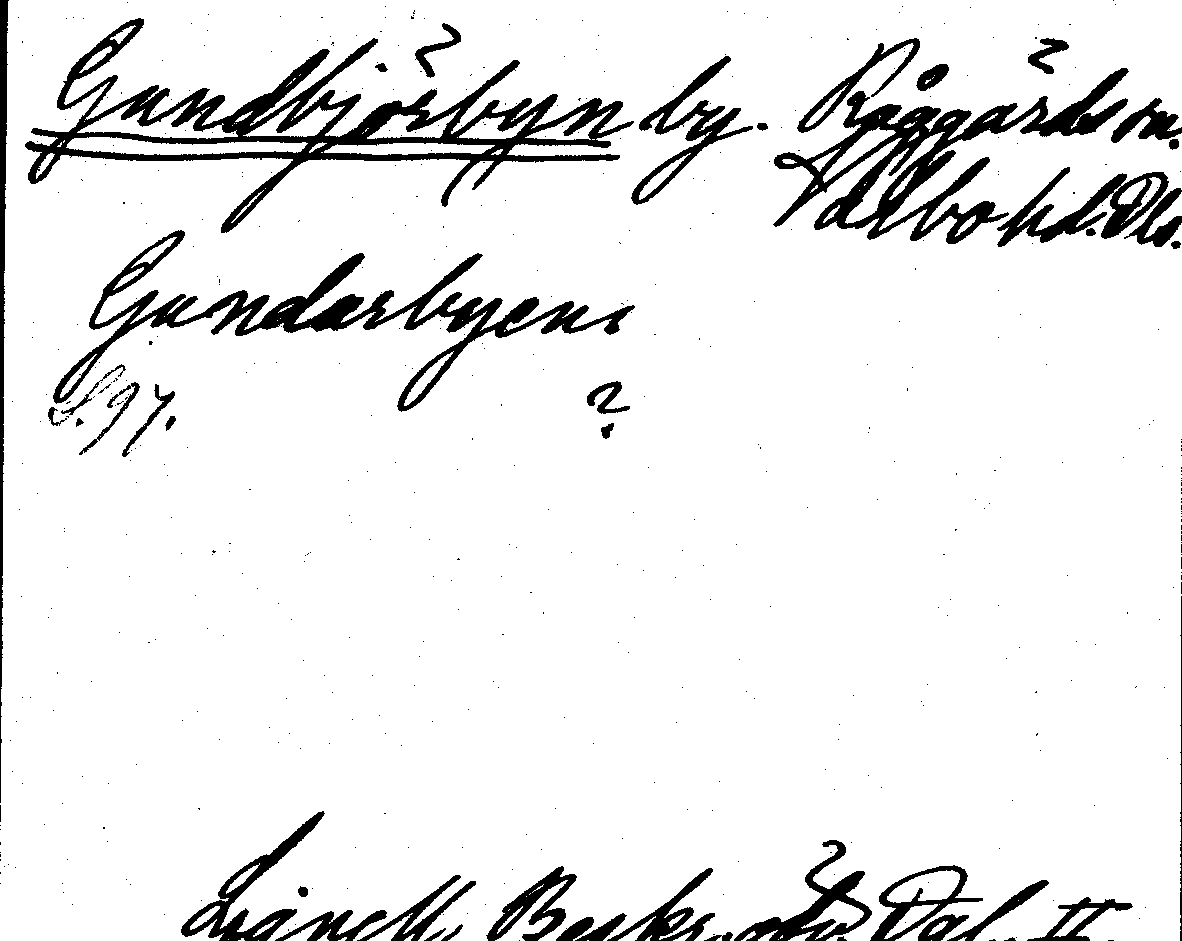 Gundbjörbyn by. Råggärds sn.
Valbo hd. Dls.
Gundarbyen.
S. 97. ?
Lignell, Beskr. öfv. Dal. II.